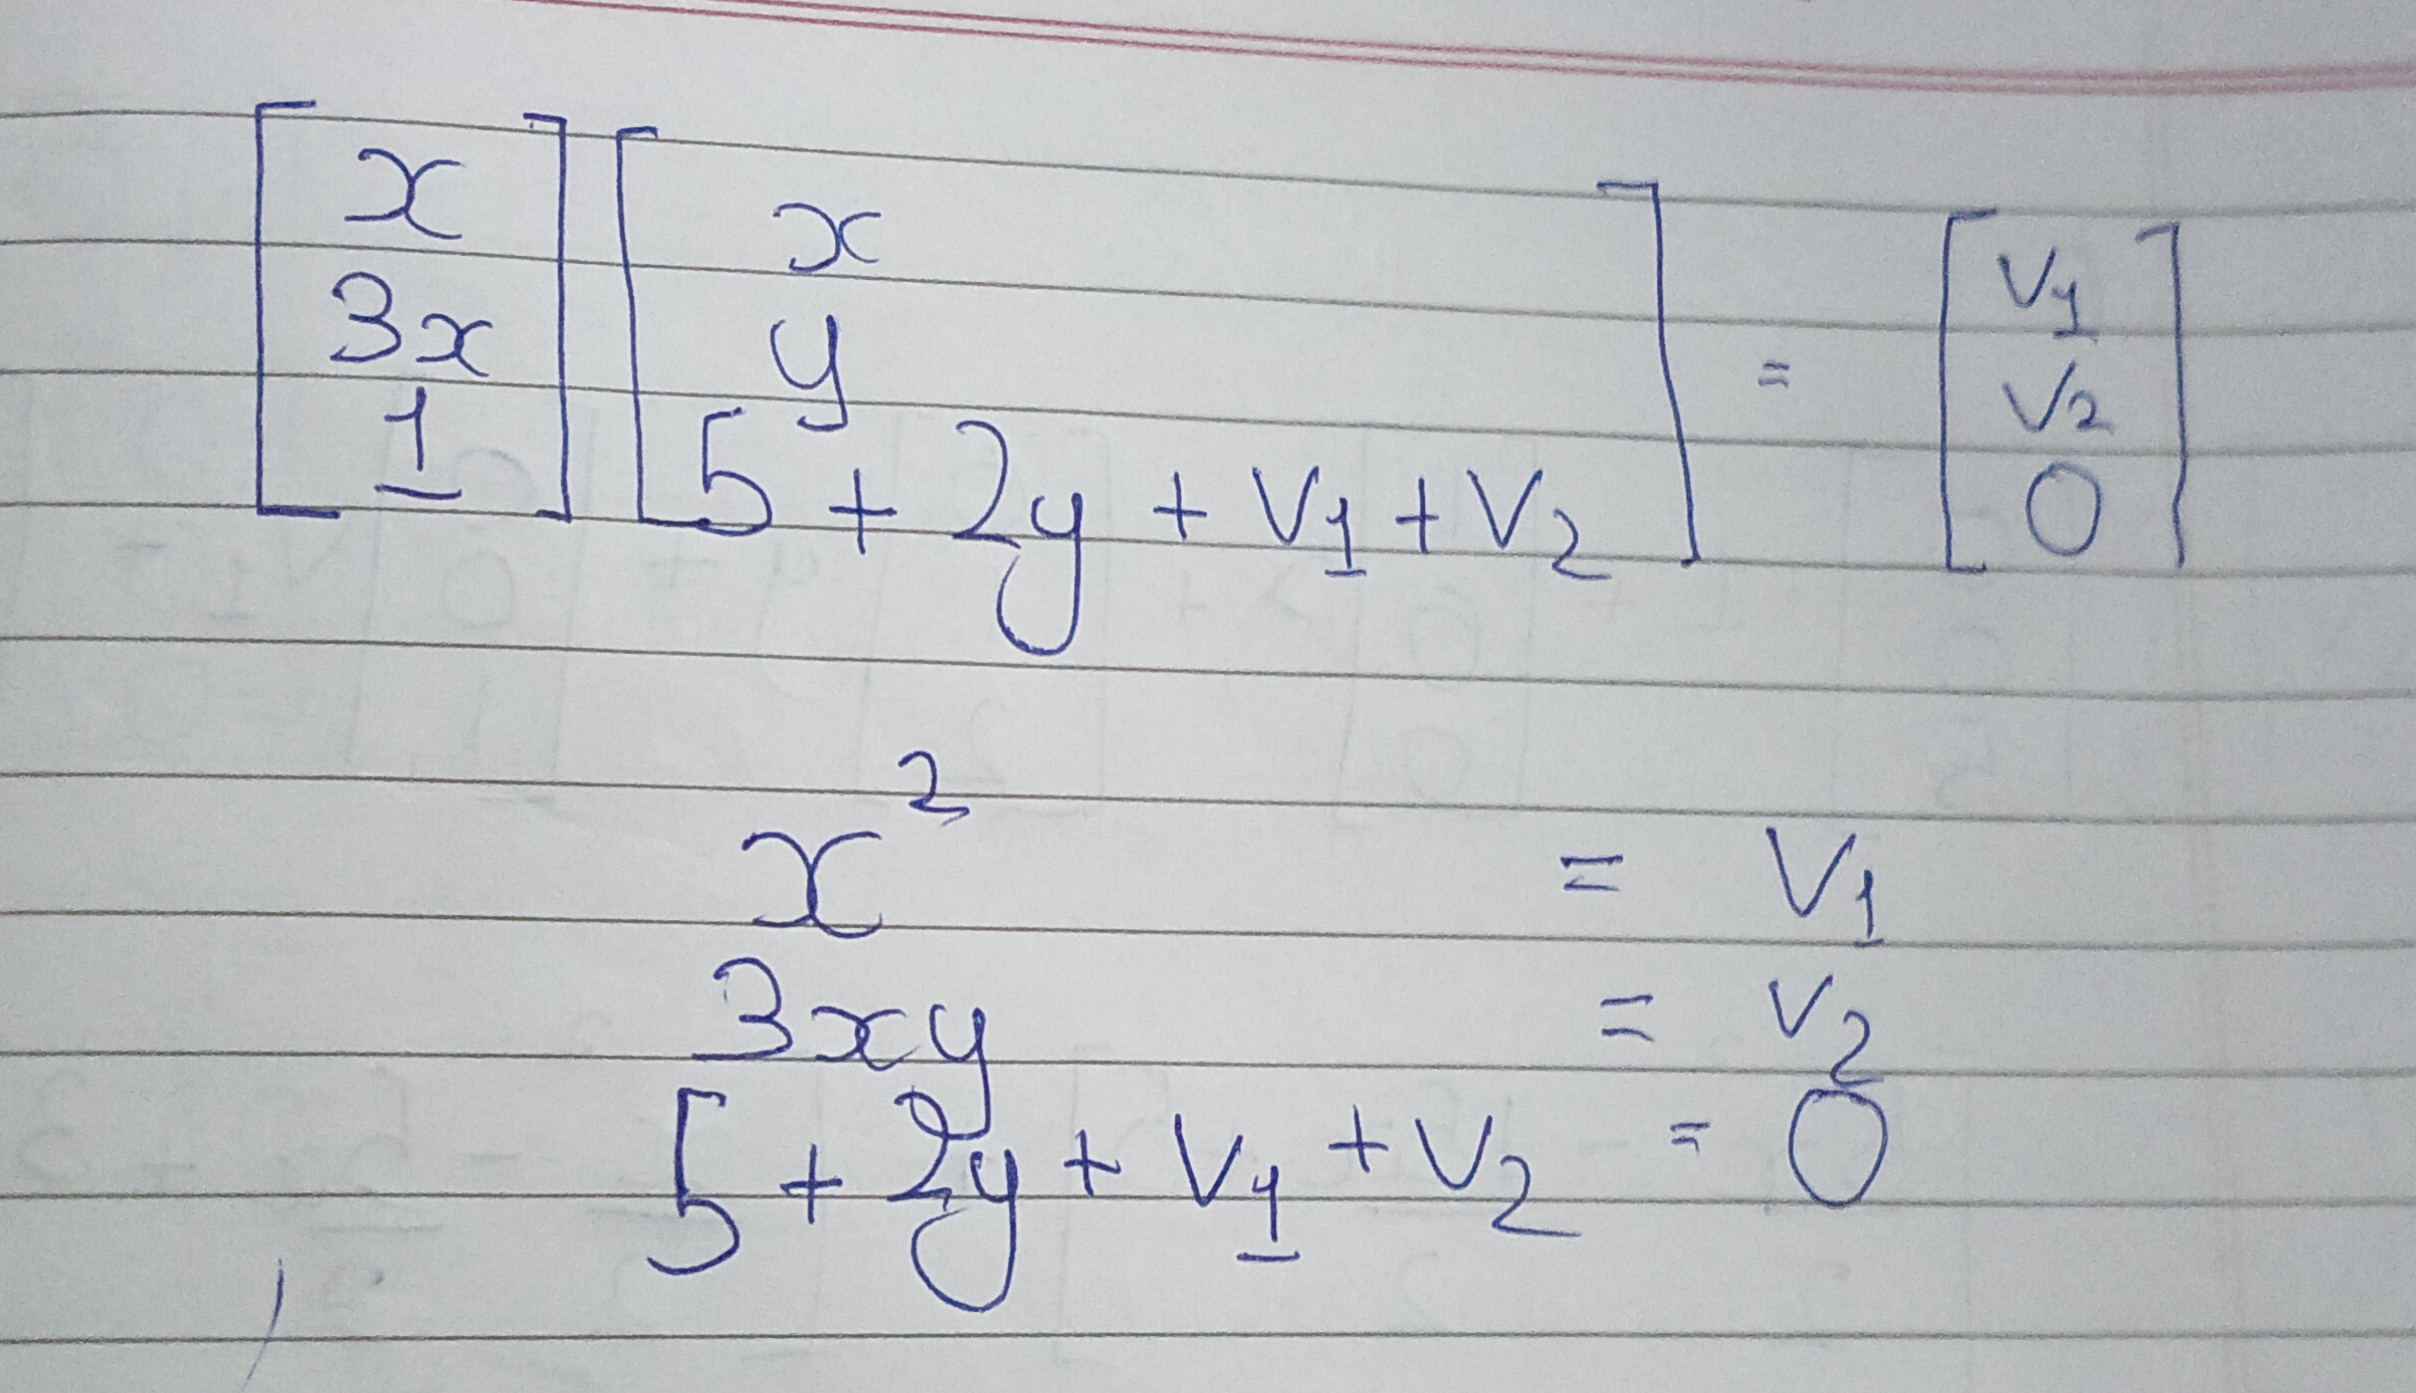 [x 3x 1] [x y 5 + 2y + V₁ + V₂] = [V₁ V₂ 0]
x² = V₁
3xy = V₂
5 + 2y + V₁ + V₂ = 0